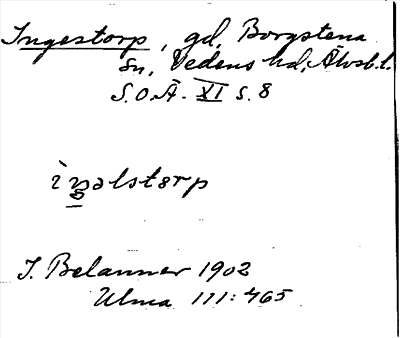 Ingestorp, gd, Borgstena
sn, Vedens hd, Älvsb. l.
S.O.Ä. XI s. 8
ìŋəlstɵrp
J. Belanner 1902
Ulma 111:465